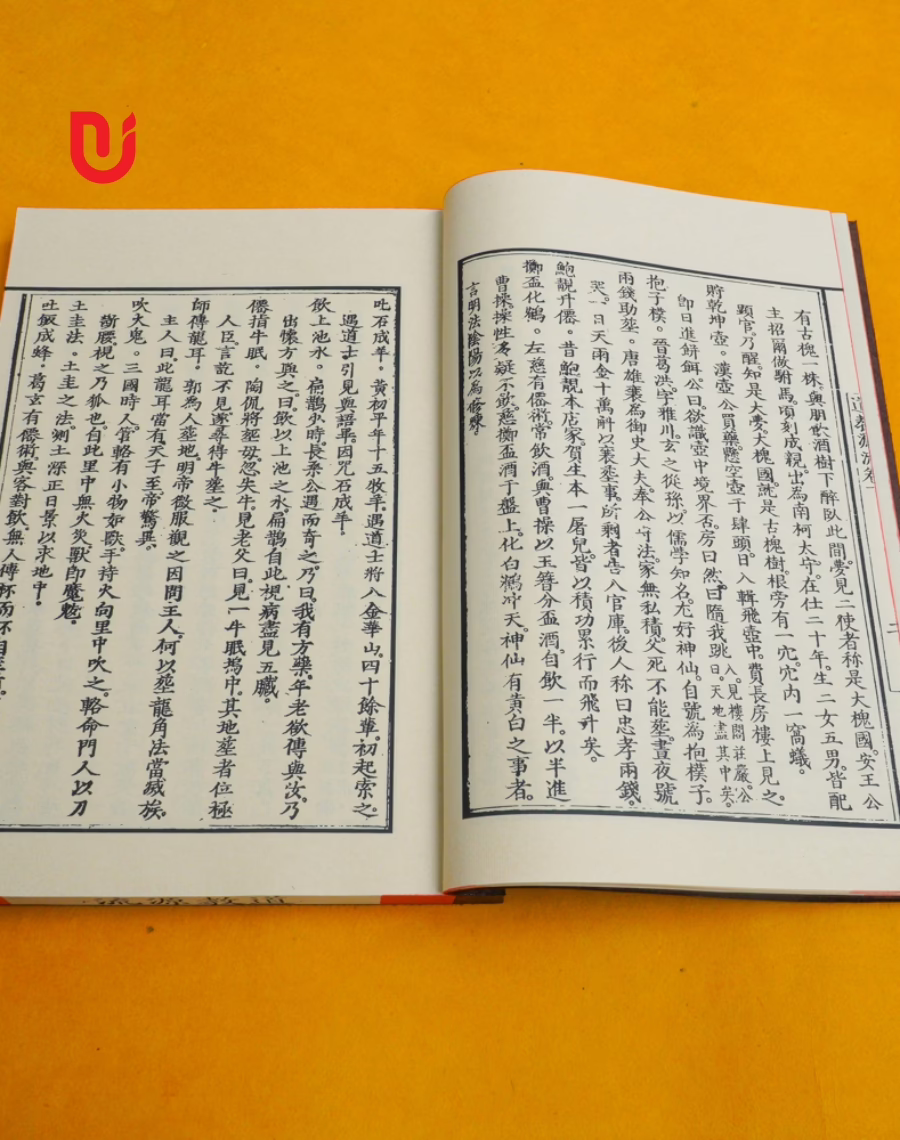 道教源流卷一 二
有古槐一株。與朋飲酒樹下醉臥此間。夢見二使者称是大槐國。安王公
主招爾做駙馬。頃刻成親。出為南柯太守。在仕二十年。生二女五男。皆配
顯官。乃醒。知是大夢。大槐國。就是古槐樹。根旁有一宂。宂內一窩蟻。
貯乾坤壺。漢壺公買藥。懸空壺于肆頭。日入輯飛壺中。費長房樓上見之。
即日進餅餌。公曰。欲識壺中境界否。房曰然。曰隨我跳入。見樓閣莊嚴。公曰。天地盡其中矣。
抱子樸。晉葛洪。字雅川。玄之從孫。以儒學知名。尤好神仙。自號為抱樸子。
雨錢助塟。唐雄裴為御史大夫。奉公守法。家無私積。父死不能塟。晝夜號
哭。一日天雨金十萬斛以裴塟事。所剩者告入官庫。後人称曰忠孝雨錢。
鮑靚升僊。昔鮑靚本店家。賀生本一屠兒。皆以積功累行而飛升矣。
擲盃化鶴。左慈有僊術。常飲酒。與曹操以玉簪分盃酒。自飲一半。以半進
曹操。操性多疑不飲。慈擲盃酒于盤上。化白鶴冲天。神仙有黃白之事者。
言明法陰陽以為修煉。
吐石成羊。黃初平年十五牧羊。遇道士將入金華山。四十餘軰。初起索之。
遇道士引見與語畢。因咒石成羊。
飲上池水。扁鵲少時。長桑公遇而奇之。乃曰。我有方藥。年老欲傳與汝。乃
出懷方與之。曰。飲以上池之水。扁鵲自此。視病盡見五臟。
僊指牛眠。陶侃將塟母。忽失牛。見老父曰。見一牛眠塢中。其地塟者位極
人臣。言訖不見。遂尋得牛塟之。
師傳龍耳。郭為人塟地。明帝微服觀之。因問王人。何以塟龍角法當滅族。
主人曰。此龍耳當有天子至。帝驚異。
吹火鬼。三國時人。管輅有小物如獸。手持火向里中吹之。輅命門人以刀
斬腰。視之乃狐也。自此里中無火災。獸即魔魃。
土圭法。土圭之法。剜土深正日景以求地中。
吐飯成蜂。葛玄有僊術。與客對飲。無人傳杯而不自至
道教源流